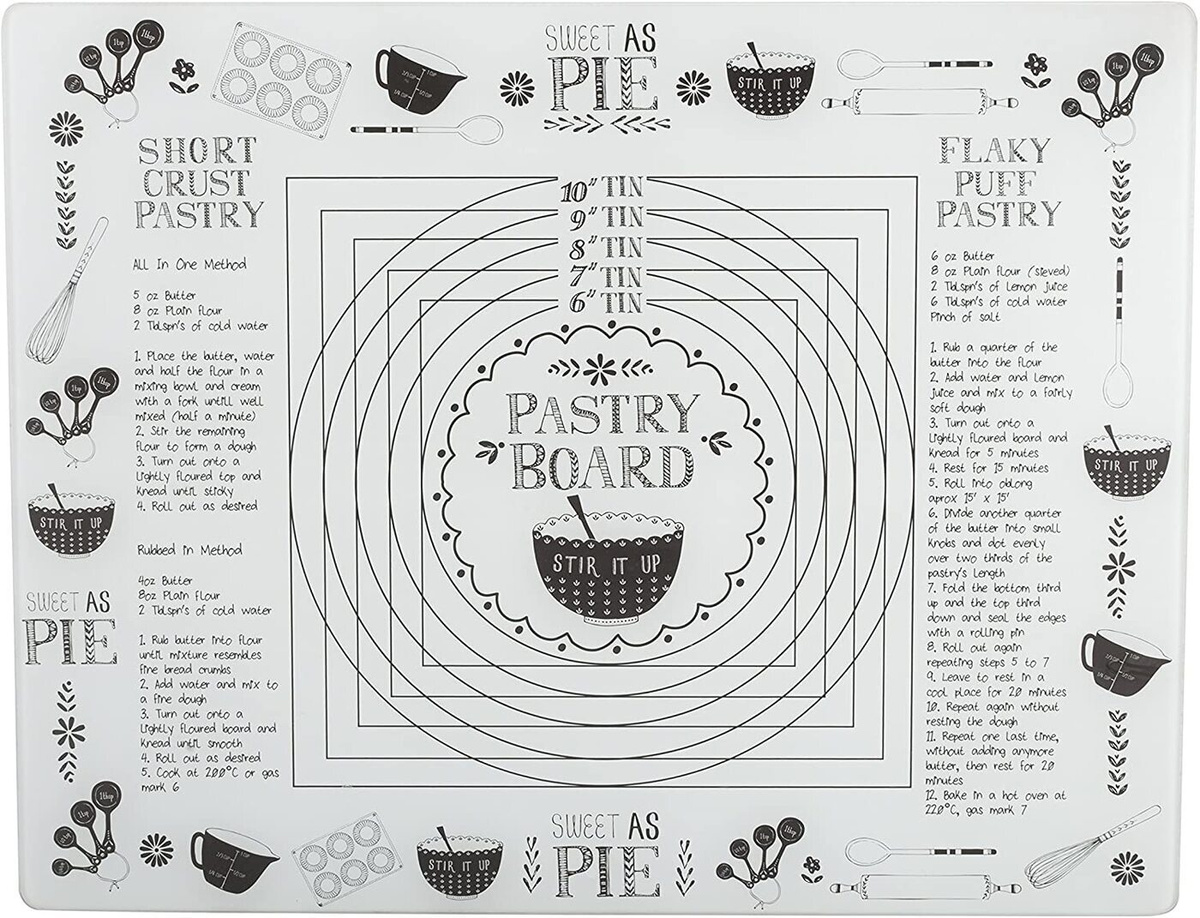 SWEET AS
PIE
STIR IT UP
SHORT
CRUST
PASTRY
ALL In One Method
5 oz Butter
8 oz Plain flour
2 Tblspn's of cold water
1. Place the butter, water
and half the flour in a
mixing bowl and cream
with a fork untill well
mixed (half a minute)
2. Stir the remaining
flour to form a dough
3. Turn out onto a
lightly floured top and
knead until sticky
4. Roll out as desired
Rubbed in Method
4oz Butter
8oz Plain flour
2 Tblspn's of cold water
1. Rub butter into flour
until mixture resembles
fine bread crumbs
2. Add water and mix to
a fine dough
3. Turn out onto a
lightly floured board and
knead until smooth
4. Roll out as desired
5. Cook at 200°C or gas
mark 6
10" TIN
9" TIN
8" TIN
7" TIN
6" TIN
PASTRY
BOARD
STIR IT UP
FLAKY
PUFF
PASTRY
6 oz Butter
8 oz Plain flour (sieved)
2 Tblspn's of Lemon juice
6 Tblspn's of cold water
Pinch of salt
1. Rub a quarter of the
butter into the flour
2. Add water and Lemon
juice and mix to a fairly
soft dough
3. Turn out onto a
lightly floured board and
knead for 5 minutes
4. Rest for 15 minutes
5. Roll into oblong
aprox 15' x 15'
6. Divide another quarter
of the butter into small
knobs and dot evenly
over two thirds of the
pastry's length
7. Fold the bottom third
up and the top third
down and seal the edges
with a rolling pin
8. Roll out again
repeating steps 5 to 7
9. Leave to rest in a
cool place for 20 minutes
10. Repeat again without
resting the dough
11. Repeat one last time,
without adding anymore
butter, then rest for 20
minutes
12. Bake in a hot oven at
220°C, gas mark 7
STIR IT UP
STIR IT UP
SWEET AS
PIE
STIR IT UP
SWEET AS
PIE